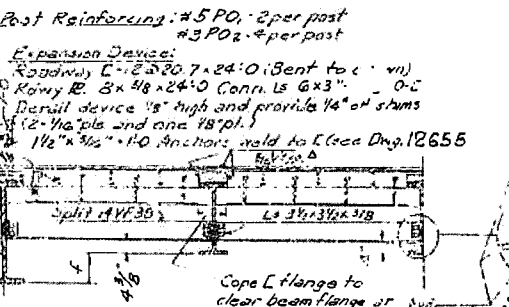 Post Reinforcing: #5 PO1 - 2 per post
#3 PO2 - 4 per post
Expansion Device:
Roadway [ - 12 @ 20.7 x 24'-0 (Bent to
Rdwy PL 8 x 5/8 x 24'-0 Conn. Ls 6 x 3"
Detail device 1/8" high and provide 1/4" of shims
(2 - 1/16" pls and one 1/8" pl.)
1 1/2" x 5/16" x 1'-0 Anchors weld to [ (see Dwg. 12655
Split 14 WF 38
Ls 3 1/2 x 3 1/2 x 3/8
f
4 3/8
Cope [ flange to
clear beam flange or